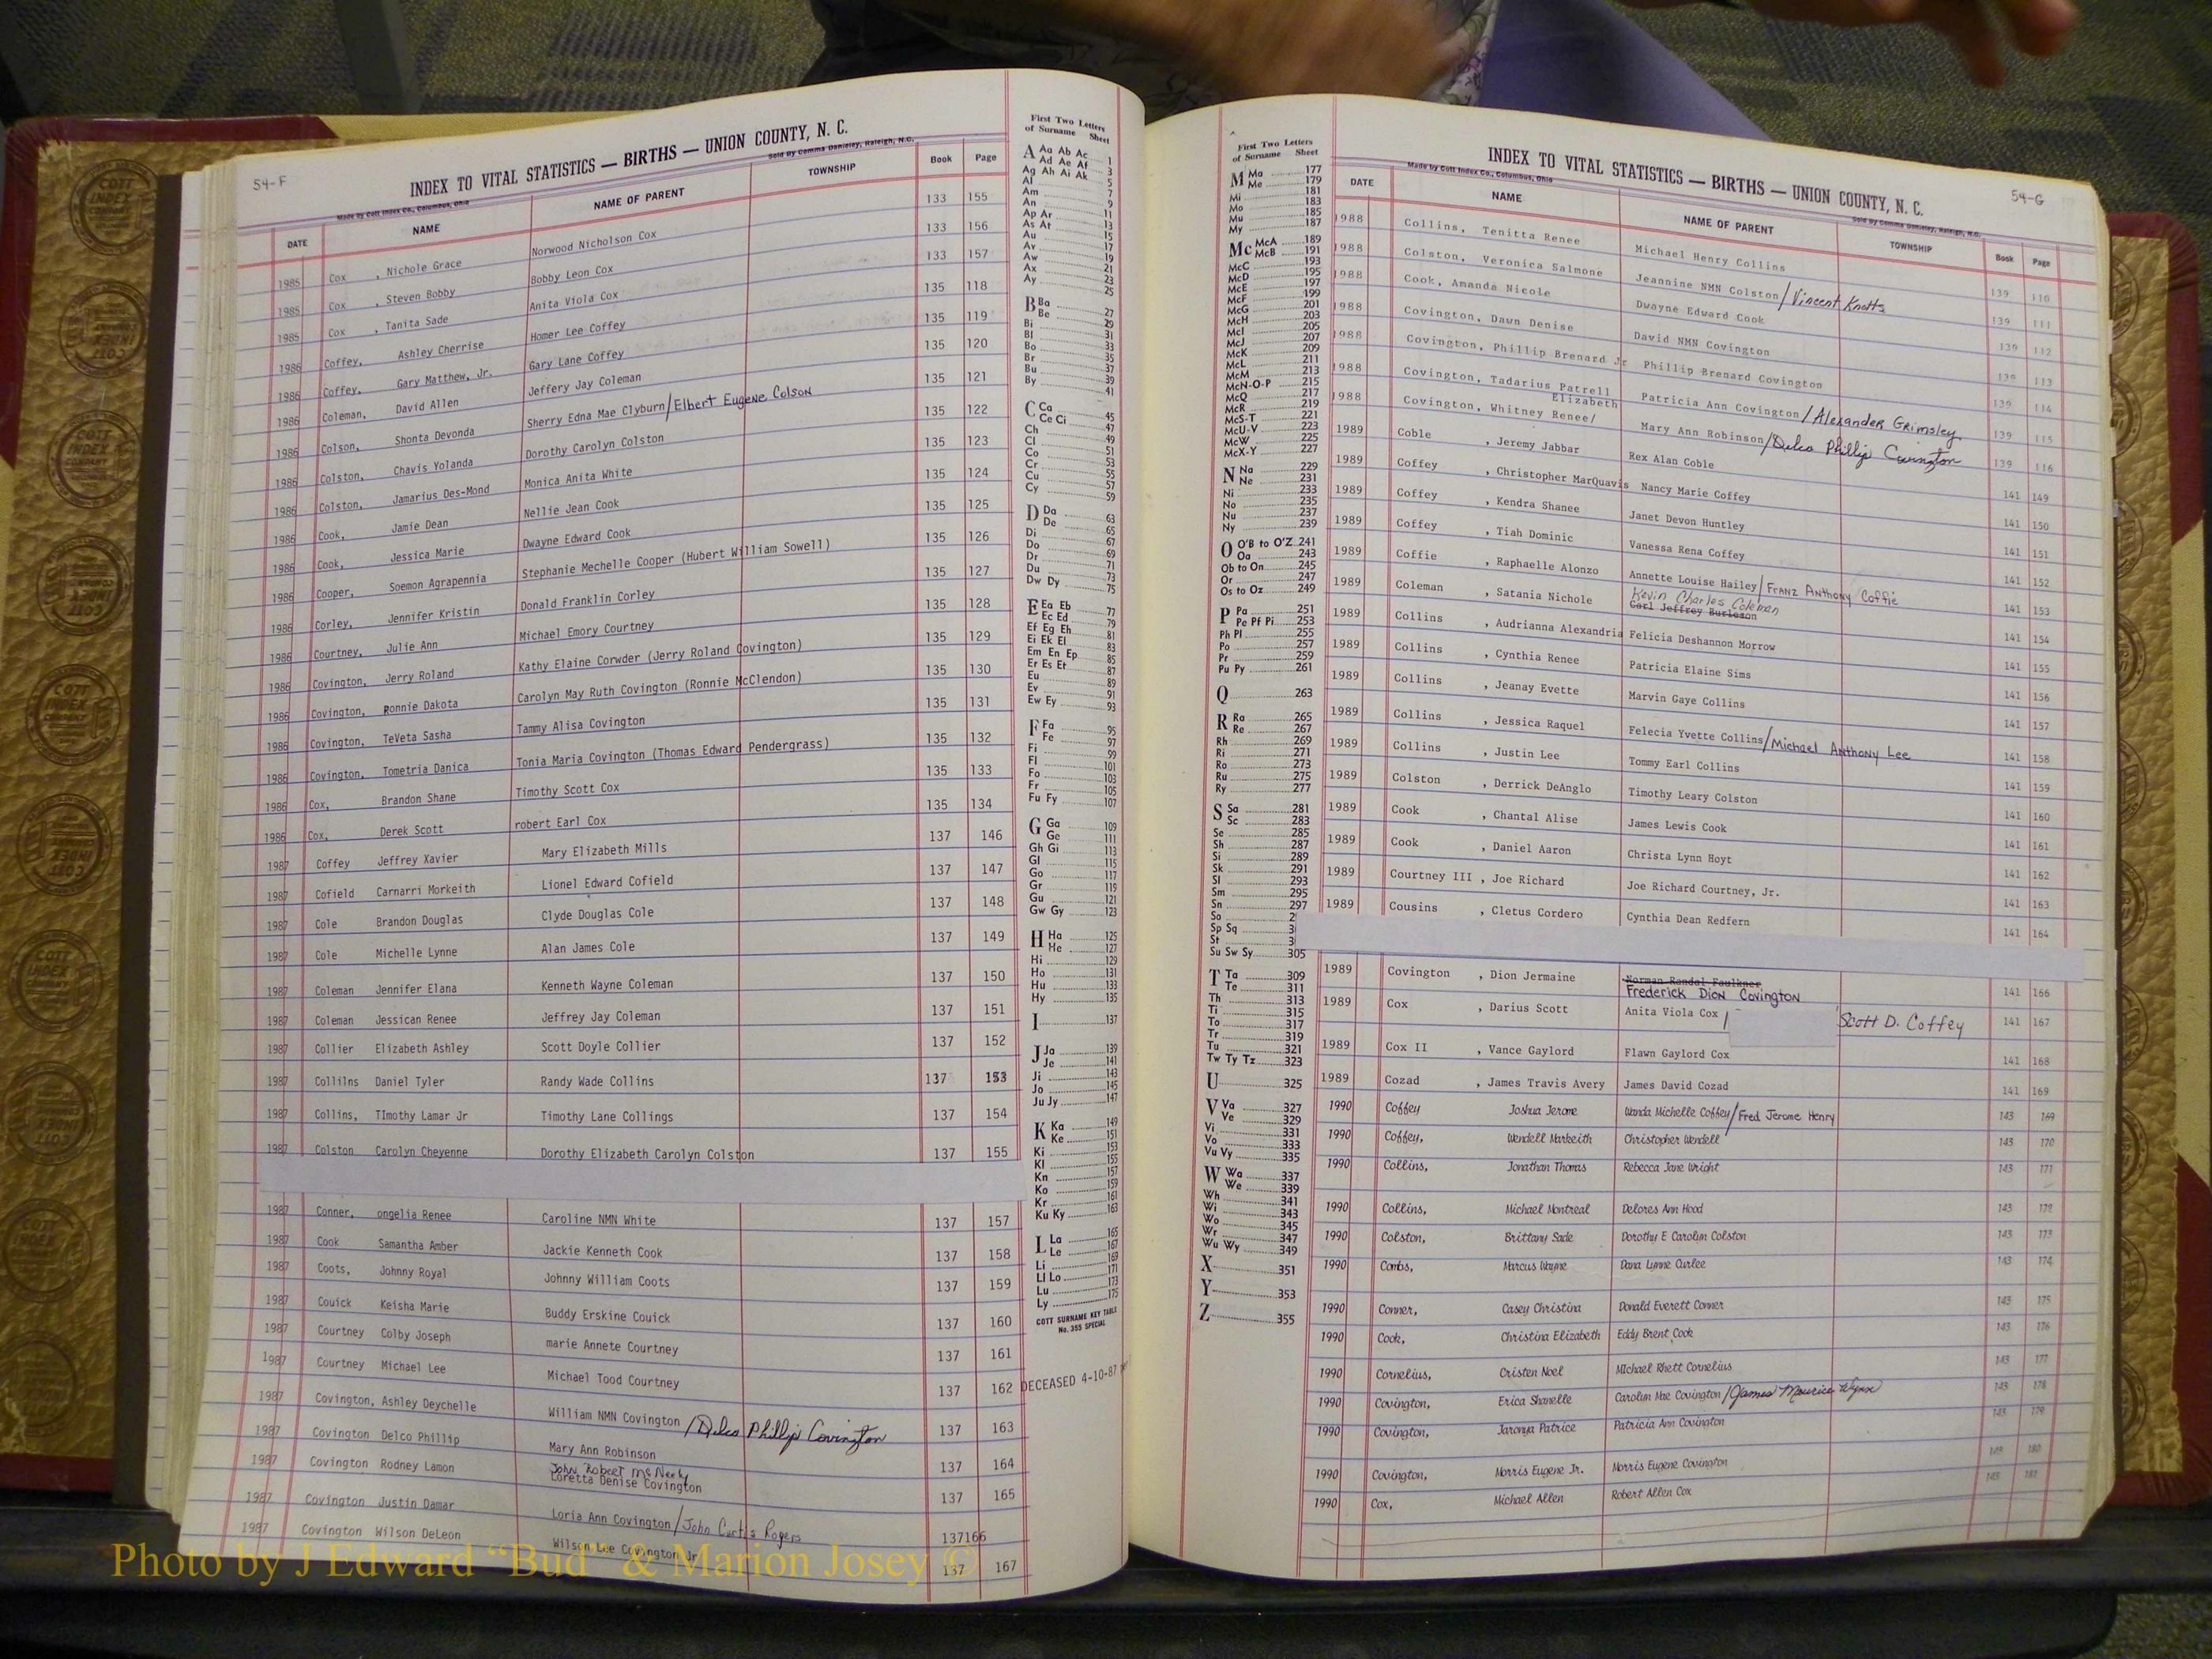 54-F
INDEX TO VITAL STATISTICS — BIRTHS — UNION COUNTY, N. C.
Made by Cott Index Co., Columbus, Ohio Sold By Comma Danieley, Raleigh, N.C.
DATE NAME NAME OF PARENT TOWNSHIP Book Page
1985 Cox , Nichole Grace Norwood Nicholson Cox 133 155
1985 Cox , Steven Bobby Bobby Leon Cox 133 156
1985 Cox , Tanita Sade Anita Viola Cox 133 157
1986 Coffey, Ashley Cherrise Homer Lee Coffey 135 118
1986 Coffey, Gary Matthew, Jr. Gary Lane Coffey 135 119
1986 Coleman, David Allen Jeffery Jay Coleman 135 120
1986 Colson, Shonta Devonda Sherry Edna Mae Clyburn/Elbert Eugene Colson 135 121
1986 Colston, Chavis Yolanda Dorothy Carolyn Colston 135 122
1986 Colston, Jamarius Des-Mond Monica Anita White 135 123
1986 Cook, Jamie Dean Nellie Jean Cook 135 124
1986 Cook, Jessica Marie Dwayne Edward Cook 135 125
1986 Cooper, Soemon Agrapennia Stephanie Mechelle Cooper (Hubert William Sowell) 135 126
1986 Corley, Jennifer Kristin Donald Franklin Corley 135 127
1986 Courtney, Julie Ann Michael Emory Courtney 135 128
1986 Covington, Jerry Roland Kathy Elaine Corwder (Jerry Roland Covington) 135 129
1986 Covington, Ronnie Dakota Carolyn May Ruth Covington (Ronnie McClendon) 135 130
1986 Covington, TeVeta Sasha Tammy Alisa Covington 135 131
1986 Covington, Tometria Danica Tonia Maria Covington (Thomas Edward Pendergrass) 135 132
1986 Cox, Brandon Shane Timothy Scott Cox 135 133
1986 Cox, Derek Scott robert Earl Cox 135 134
1987 Coffey Jeffrey Xavier Mary Elizabeth Mills 137 146
1987 Cofield Carnarri Morkeith Lionel Edward Cofield 137 147
1987 Cole Brandon Douglas Clyde Douglas Cole 137 148
1987 Cole Michelle Lynne Alan James Cole 137 149
1987 Coleman Jennifer Elana Kenneth Wayne Coleman 137 150
1987 Coleman Jessican Renee Jeffrey Jay Coleman 137 151
1987 Collier Elizabeth Ashley Scott Doyle Collier 137 152
1987 Collilns Daniel Tyler Randy Wade Collins 137 153
1987 Collins, TImothy Lamar Jr Timothy Lane Collings 137 154
1987 Colston Carolyn Cheyenne Dorothy Elizabeth Carolyn Colston 137 155
1987 Conner, ongelia Renee Caroline NMN White 137 157
1987 Cook Samantha Amber Jackie Kenneth Cook 137 158
1987 Coots, Johnny Royal Johnny William Coots 137 159
1987 Couick Keisha Marie Buddy Erskine Couick 137 160
1987 Courtney Colby Joseph marie Annete Courtney 137 161
1987 Courtney Michael Lee Michael Tood Courtney 137 162 DECEASED 4-10-87
1987 Covington, Ashley Deychelle William NMN Covington 137 163
1987 Covington Delco Phillip Mary Ann Robinson /Delco Phillip Covington 137 164
1987 Covington Rodney Lamon John Robert McNeely Loretta Denise Covington 137 165
1987 Covington Justin Damar Loria Ann Covington/John Curtis Rogers 137166
1987 Covington Wilson DeLeon Wilson Lee Covington Jr 137 167
First Two Letters
of Surname Sheet
A Aa Ab Ac 1
Ad Ae Af 3
Ag Ah Ai Ak 5
Al 7
Am 9
An 11
Ap Ar 13
As At 15
Au 17
Av 19
Aw 21
Ax 23
Ay 25
B Ba 27
Be 29
Bi 31
Bl 33
Bo 35
Br 37
Bu 39
By 41
C Ca 45
Ce Ci 47
Ch 49
Cl 51
Co 53
Cr 55
Cu 57
Cy 59
D Da 63
De 65
Di 67
Do 69
Dr 71
Du 73
Dw Dy 75
E Ea Eb 77
Ec Ed 79
Ef Eg Eh 81
Ei Ek El 83
Em En Ep 85
Er Es Et 87
Eu 89
Ev 91
Ew Ey 93
F Fa 95
Fe 97
Fi 99
Fl 101
Fo 103
Fr 105
Fu Fy 107
G Ga 109
Ge 111
Gh Gi 113
Gl 115
Go 117
Gr 119
Gu 121
Gw Gy 123
H Ha 125
He 127
Hi 129
Ho 131
Hu 133
Hy 135
I 137
J Ja 139
Je 141
Ji 143
Jo 145
Ju Jy 147
K Ka 149
Ke 151
Ki 153
Kl 155
Kn 157
Ko 159
Kr 161
Ku Ky 163
L La 165
Le 167
Li 169
Ll Lo 171
Lu 173
Ly 175
COTT SURNAME KEY TABLE
No. 355 SPECIAL
First Two Letters
of Surname Sheet
M Ma 177
Me 179
Mi 181
Mo 183
Mu 185
My 187
Mc McA 189
McB 191
McC 193
McD 195
McE 197
McF 199
McG 201
McH 203
McI 205
McJ 207
McK 209
McL 211
McM 213
McN-O-P 215
McQ 217
McR 219
McS-T 221
McU-V 223
McW 225
McX-Y 227
N Na 229
Ne 231
Ni 233
No 235
Nu 237
Ny 239
O O'B to O'Z 241
Oa 243
Ob to On 245
Or 247
Os to Oz 249
P Pa 251
Pe Pf Pi 253
Ph Pl 255
Po 257
Pr 259
Pu Py 261
Q 263
R Ra 265
Re 267
Rh 269
Ri 271
Ro 273
Ru 275
Ry 277
S Sa 281
Sc 283
Se 285
Sh 287
Si 289
Sk 291
Sl 293
Sm 295
Sn 297
So
Sp Sq
St
Su Sw Sy 305
T Ta 309
Te 311
Th 313
Ti 315
To 317
Tr 319
Tu 321
Tw Ty Tz 323
U 325
V Va 327
Ve 329
Vi 331
Vo 333
Vu Vy 335
W Wa 337
We 339
Wh 341
Wi 343
Wo 345
Wr 347
Wu Wy 349
X 351
Y 353
Z 355
54-G
INDEX TO VITAL STATISTICS — BIRTHS — UNION COUNTY, N. C.
Made by Cott Index Co., Columbus, Ohio Sold By Comma Danieley, Raleigh, N.C.
DATE NAME NAME OF PARENT TOWNSHIP Book Page
1988 Collins, Tenitta Renee Michael Henry Collins 139 110
1988 Colston, Veronica Salmone Jeannine NMN Colston/Vincent Knotts 139 111
1988 Cook, Amanda Nicole Dwayne Edward Cook 139 112
1988 Covington, Dawn Denise David NMN Covington 139 113
1988 Covington, Phillip Brenard Jr Phillip Brenard Covington 139 114
1988 Covington, Tadarius Patrell Patricia Ann Covington/Alexander Grimsley 139 115
1988 Covington, Whitney Renee/ Elizabeth Mary Ann Robinson/Delco Phillip Covington 139 116
1989 Coble , Jeremy Jabbar Rex Alan Coble 141 149
1989 Coffey , Christopher MarQuavis Nancy Marie Coffey 141 150
1989 Coffey , Kendra Shanee Janet Devon Huntley 141 151
1989 Coffey , Tiah Dominic Vanessa Rena Coffey 141 152
1989 Coffie , Raphaelle Alonzo Annette Louise Hailey/Franz Anthony Coffie 141 153
1989 Coleman , Satania Nichole Kevin Charles Coleman Carl Jeffrey Burleson 141 154
1989 Collins , Audrianna Alexandria Felicia Deshannon Morrow 141 155
1989 Collins , Cynthia Renee Patricia Elaine Sims 141 156
1989 Collins , Jeanay Evette Marvin Gaye Collins 141 157
1989 Collins , Jessica Raquel Felecia Yvette Collins/Michael Anthony Lee 141 158
1989 Collins , Justin Lee Tommy Earl Collins 141 159
1989 Colston , Derrick DeAnglo Timothy Leary Colston 141 160
1989 Cook , Chantal Alise James Lewis Cook 141 161
1989 Cook , Daniel Aaron Christa Lynn Hoyt 141 162
1989 Courtney III , Joe Richard Joe Richard Courtney, Jr. 141 163
1989 Cousins , Cletus Cordero Cynthia Dean Redfern 141 164
1989 Covington , Dion Jermaine Norman Randal Faulkner Frederick Dion Covington 141 166
1989 Cox , Darius Scott Anita Viola Cox / Scott D. Coffey 141 167
1989 Cox II , Vance Gaylord Flawn Gaylord Cox 141 168
1989 Cozad , James Travis Avery James David Cozad 141 169
1990 Coffey Joshua Jerome Wanda Michelle Coffey/Fred Jerome Henry 143 169
1990 Coffey, Wendell Markeith Christopher Wendell 143 170
1990 Collins, Jonathan Thomas Rebecca Jane Wright 143 171
1990 Collins, Michael Montreal Delores Ann Hood 143 172
1990 Colston, Brittany Sade Dorothy E Carolyn Colston 143 173
1990 Combs, Marcus Wayne Dana Lynne Curlee 143 174
1990 Conner, Casey Christina Donald Everett Conner 143 175
1990 Cook, Christina Elizabeth Eddy Brent Cook 143 176
1990 Cornelius, Cristen Noel Michael Rhett Cornelius 143 177
1990 Covington, Erica Shanelle Carolyn Mae Covington/James Maurice Wynn 143 178
1990 Covington, Jaronya Patrice Patricia Ann Covington 143 179
1990 Covington, Morris Eugene Jr. Morris Eugene Covington 143 180
1990 Cox, Michael Allen Robert Allen Cox 143 181
Photo by J Edward “Bud” & Marion Josey ©